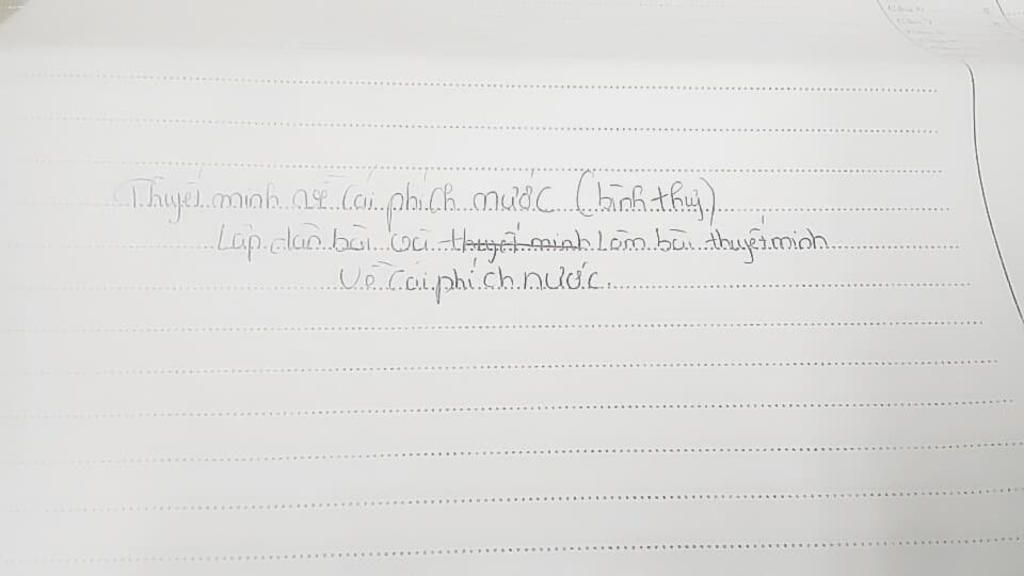 Thuyết minh về cái phích nước (bình thuỷ)
Lập dàn bài và thuyết minh Làm bài thuyết minh
Về cái phích nước.